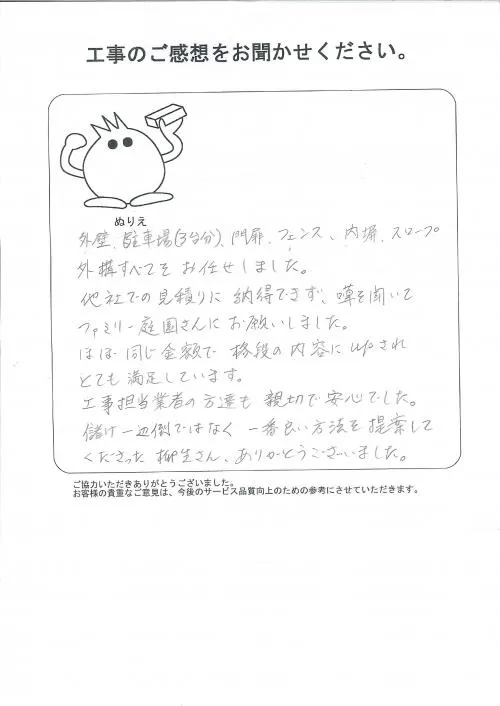 工事のご感想をお聞かせください。
ぬりえ
外壁、駐車場(3台分)、門扉、フェンス、内塀、スロープ
外構すべてをお任せしました。
他社での見積りに納得できず、噂を聞いて
ファミリー庭園さんにお願いしました。
ほぼ同じ金額で格段の内容にupされ
とても満足しています。
工事担当業者の方達も親切で安心でした。
儲け一辺倒ではなく一番良い方法を提案して
くださった柳生さん、ありがとうございました。
ご協力いただきありがとうございました。
お客様の貴重なご意見は、今後のサービス品質向上のための参考にさせていただきます。